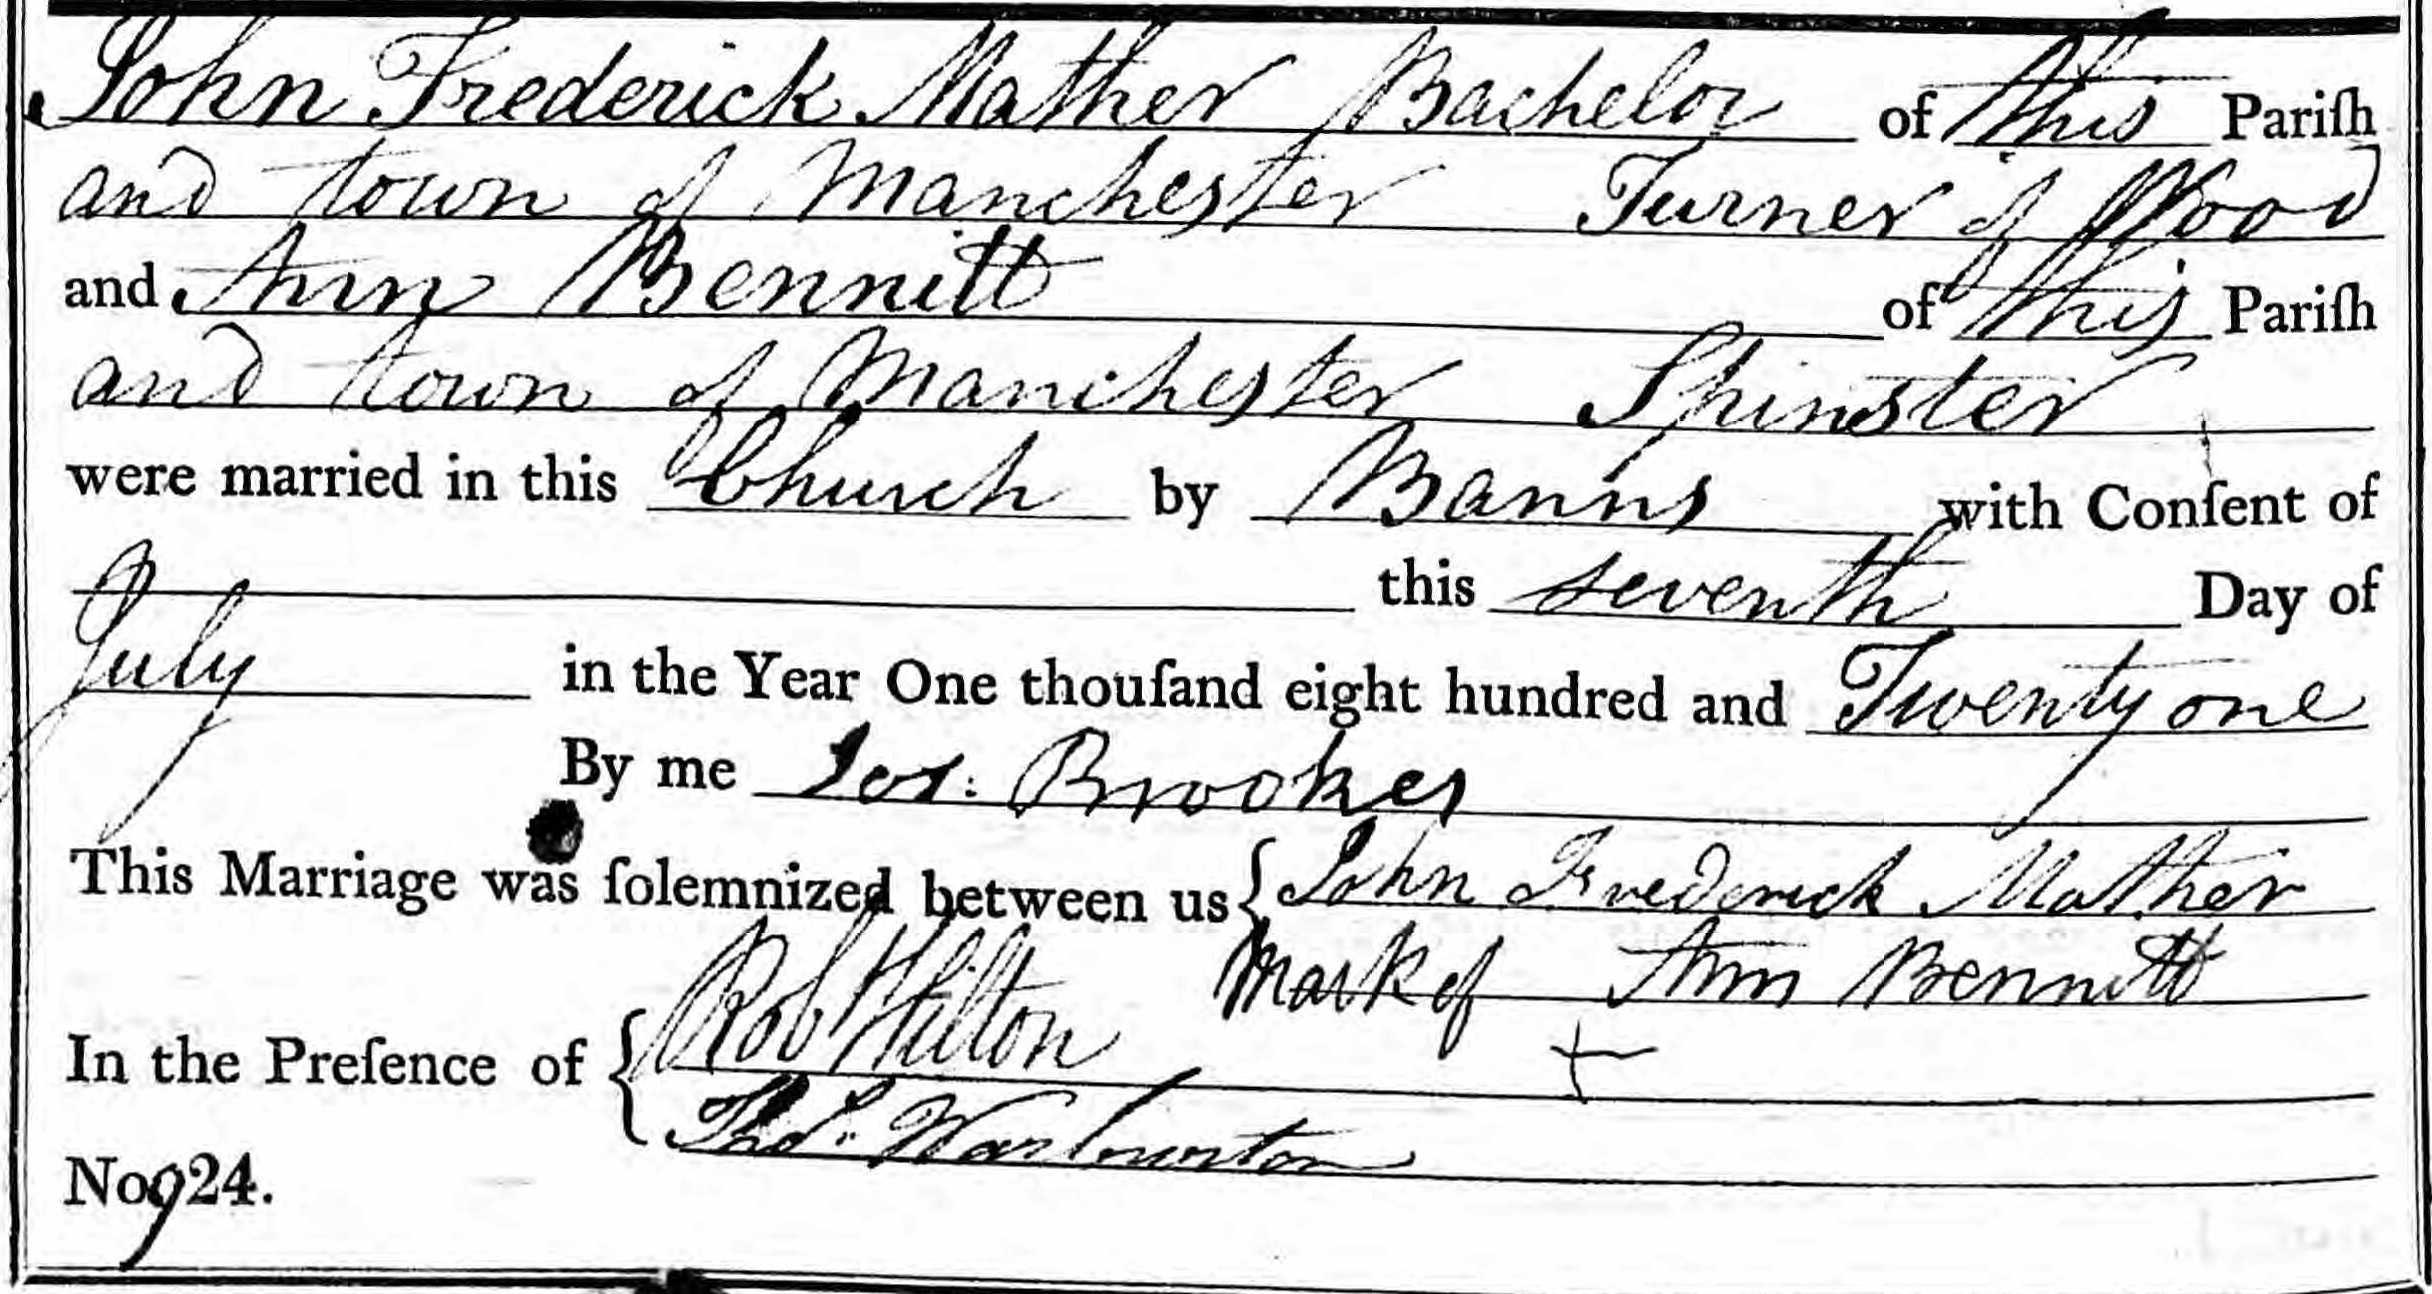 John Frederick Mather Bachelor of this Pariſh
and town of Manchester Turner of Wood
and Ann Bennitt of this Pariſh
and town of Manchester Spinster
were married in this Church by Banns with Conſent of
this seventh Day of
July in the Year One thouſand eight hundred and Twenty one
By me Jos: Brookes
This Marriage was ſolemnized between us { John Frederick Mather
Mark of Ann Bennitt
+
In the Preſence of { Rob Hilton
Thos. Warburton
No 924.